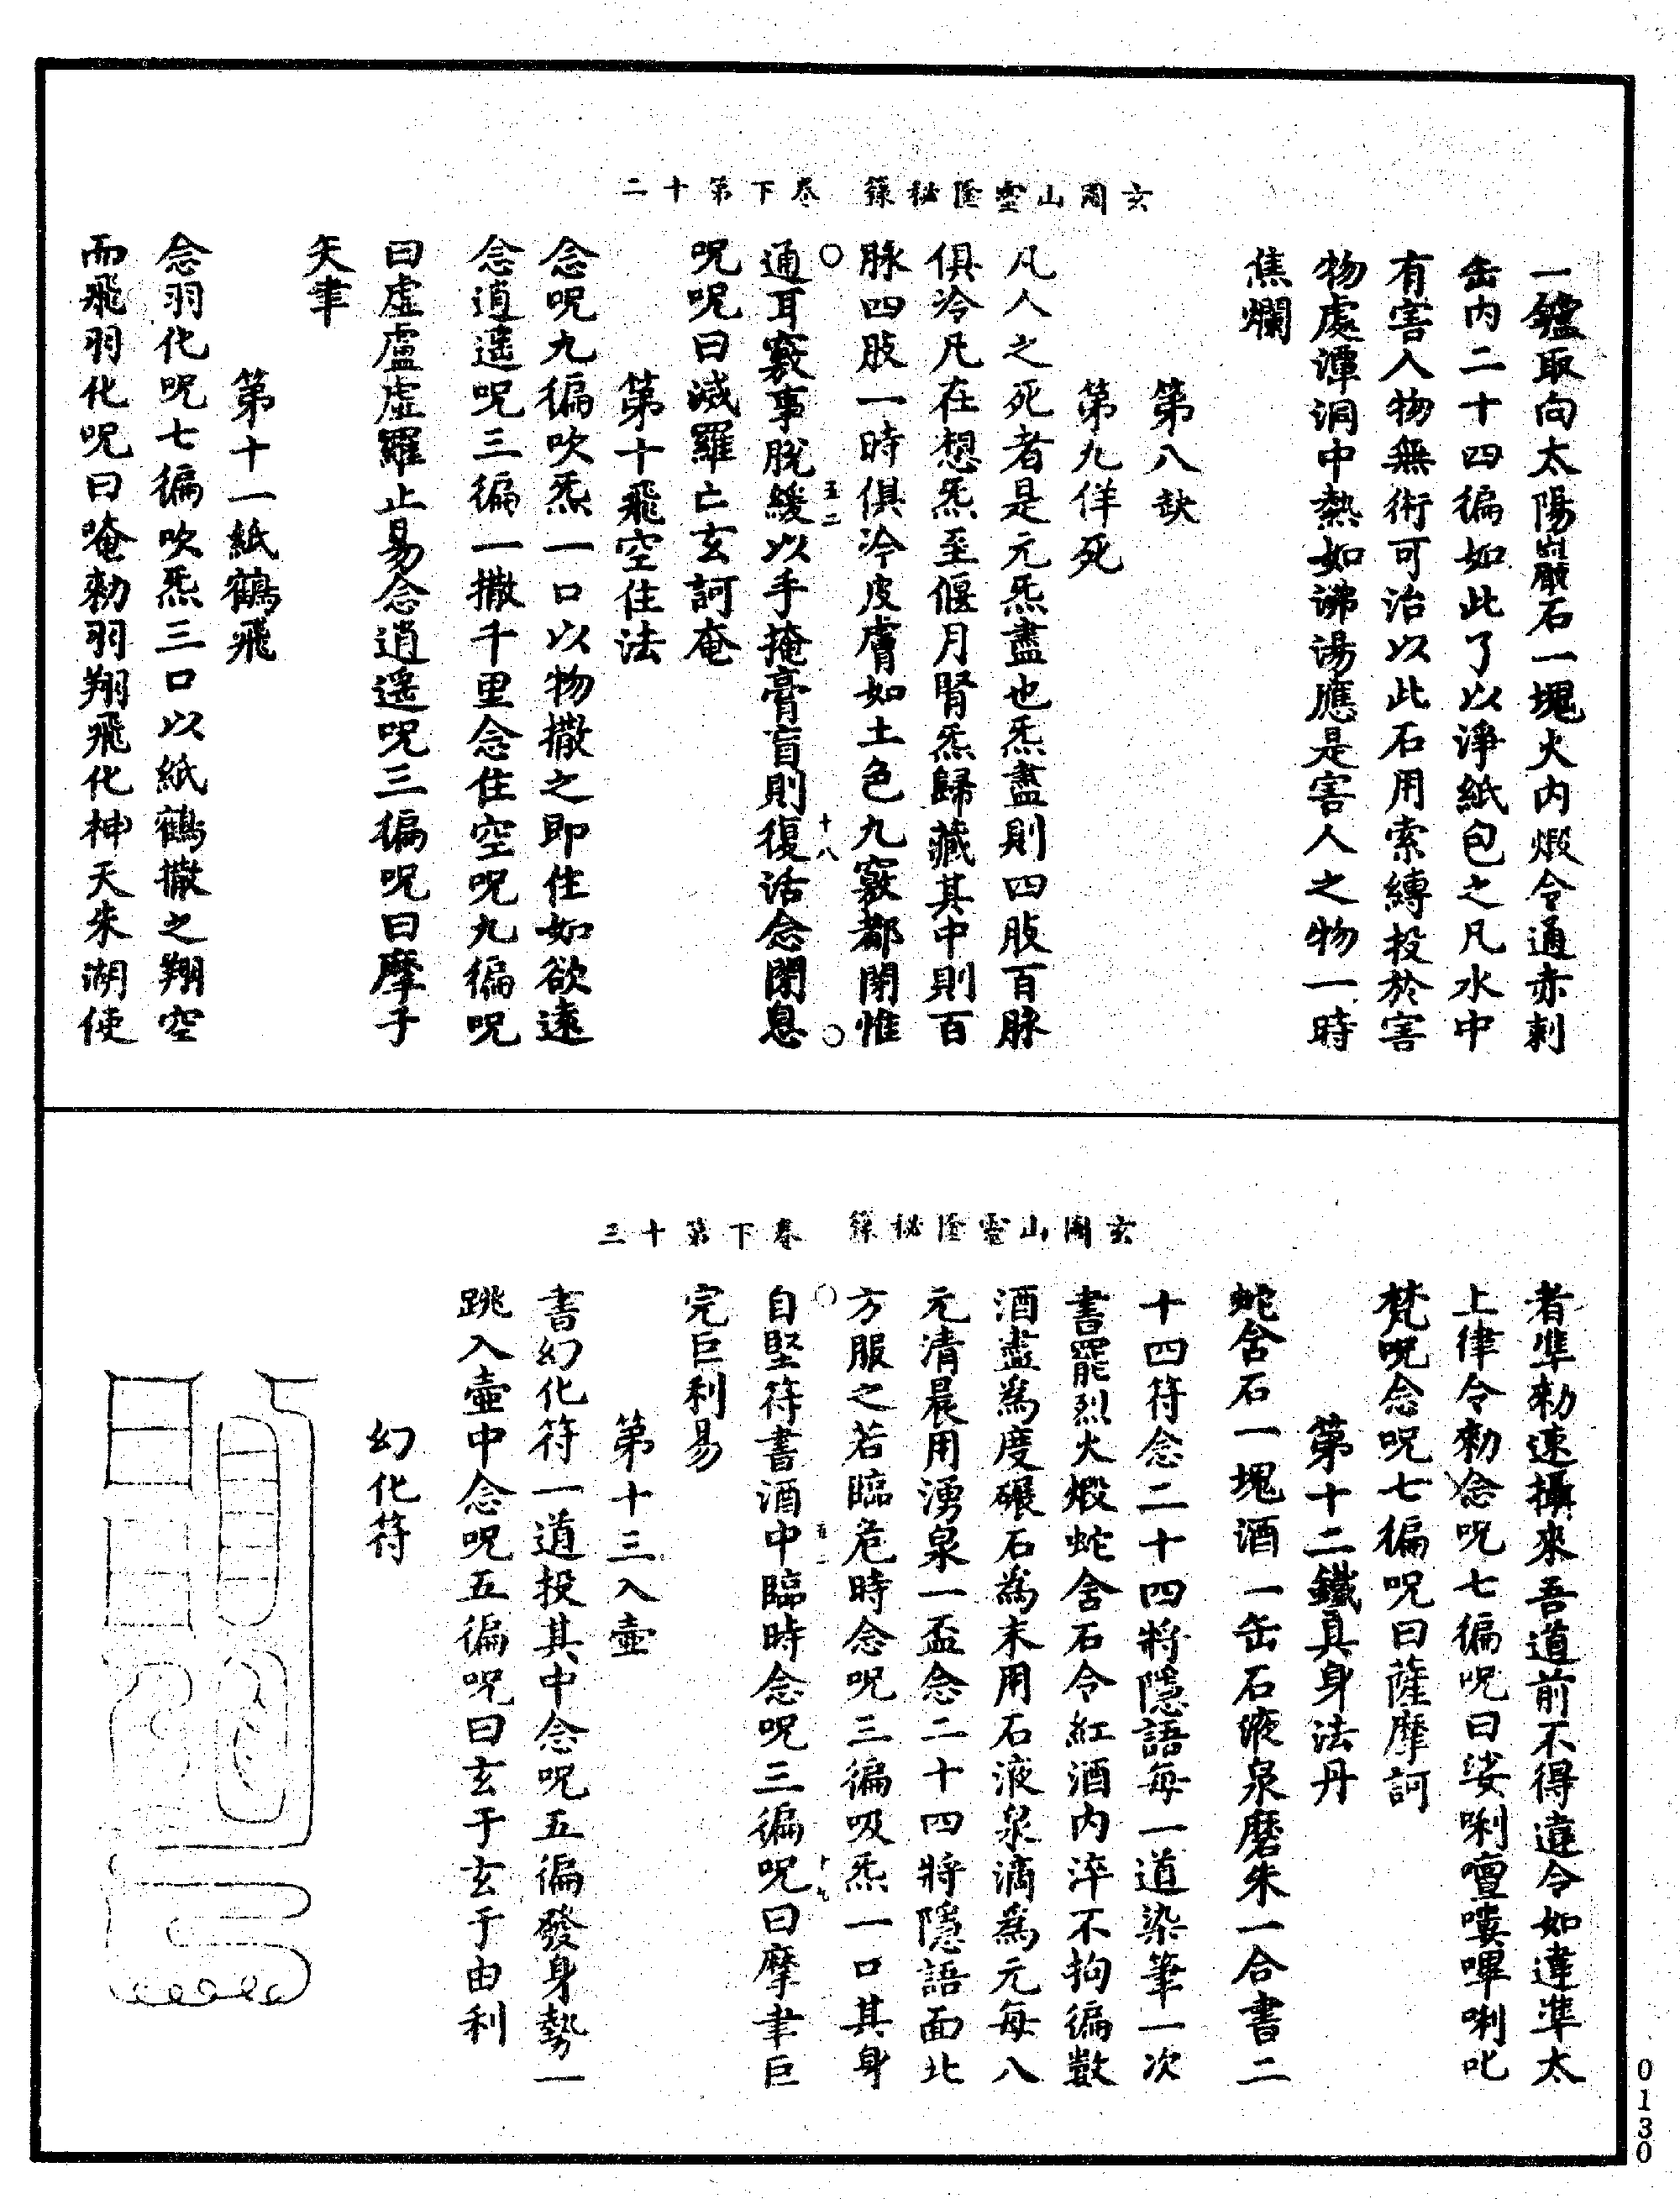 玄圃山靈𨼆秘籙　卷下第十二
一鑪取向太陽巖石一塊火内煅令通赤刺
缶内二十四徧如此了以淨紙包之凡水中
有害人物無術可治以此石用索縛投於害
物處潭洞中熱如沸湯應是害人之物一時
焦爛
第八缺
第九佯死
凡人之死者是元炁盡也炁盡則四肢百脉
俱冷凡在想炁至偃月腎炁歸藏其中則百
脉四肢一時俱冷皮膚如土色九竅都閉惟
通耳竅事脫緩以手掩膏肓則復活念閉息
呪呪曰滅羅亡玄訶奄
第十飛空住法
念呪九徧吹炁一口以物撒之即住如欲遠
念逍遥呪三徧一撒千里念住空呪九徧呪
曰虛盧虛羅止易念逍遥呪三徧呪曰摩子
矢聿
第十一紙鶴飛
念羽化呪七徧吹炁三口以紙鶴撒之翔空
而飛羽化呪曰唵勑羽翔飛化神天朱湖使
玄圃山靈𨼆秘籙　卷下第十三
者準勑速攝來吾道前不得違令如違準太
上律令勑念呪七徧呪曰娑唎嚪嘍嗶唎叱
梵呪念呪七徧呪曰薩摩訶
第十二鐵具身法丹
蛇含石一塊酒一缶石液泉磨朱一合書二
十四符念二十四將隱語每一道染筆一次
書罷烈火煅蛇含石令紅酒内淬不拘徧數
酒盡為度碾石為末用石液泉滴為元每八
元清晨用湧泉一盃念二十四將隱語面北
方服之若臨危時念呪三徧吸炁一口其身
自堅符書酒中臨時念呪三徧呪曰摩聿巨
完巨利易
第十三入壺
書幻化符一道投其中念呪五徧發身勢一
跳入壺中念呪五徧呪曰玄于玄于由利
幻化符
0130